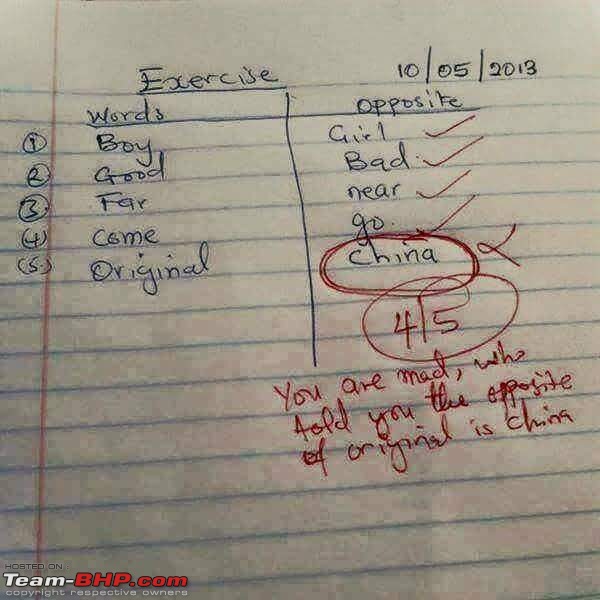 Exercise 10/05/2013
Words opposite
① Boy Girl
② Good Bad.
③ Far near
(4) come go.
(5) Original China
4/5
You are mad, who
told you the opposite
of original is China
HOSTED ON
Team-BHP.com
copyright respective owners